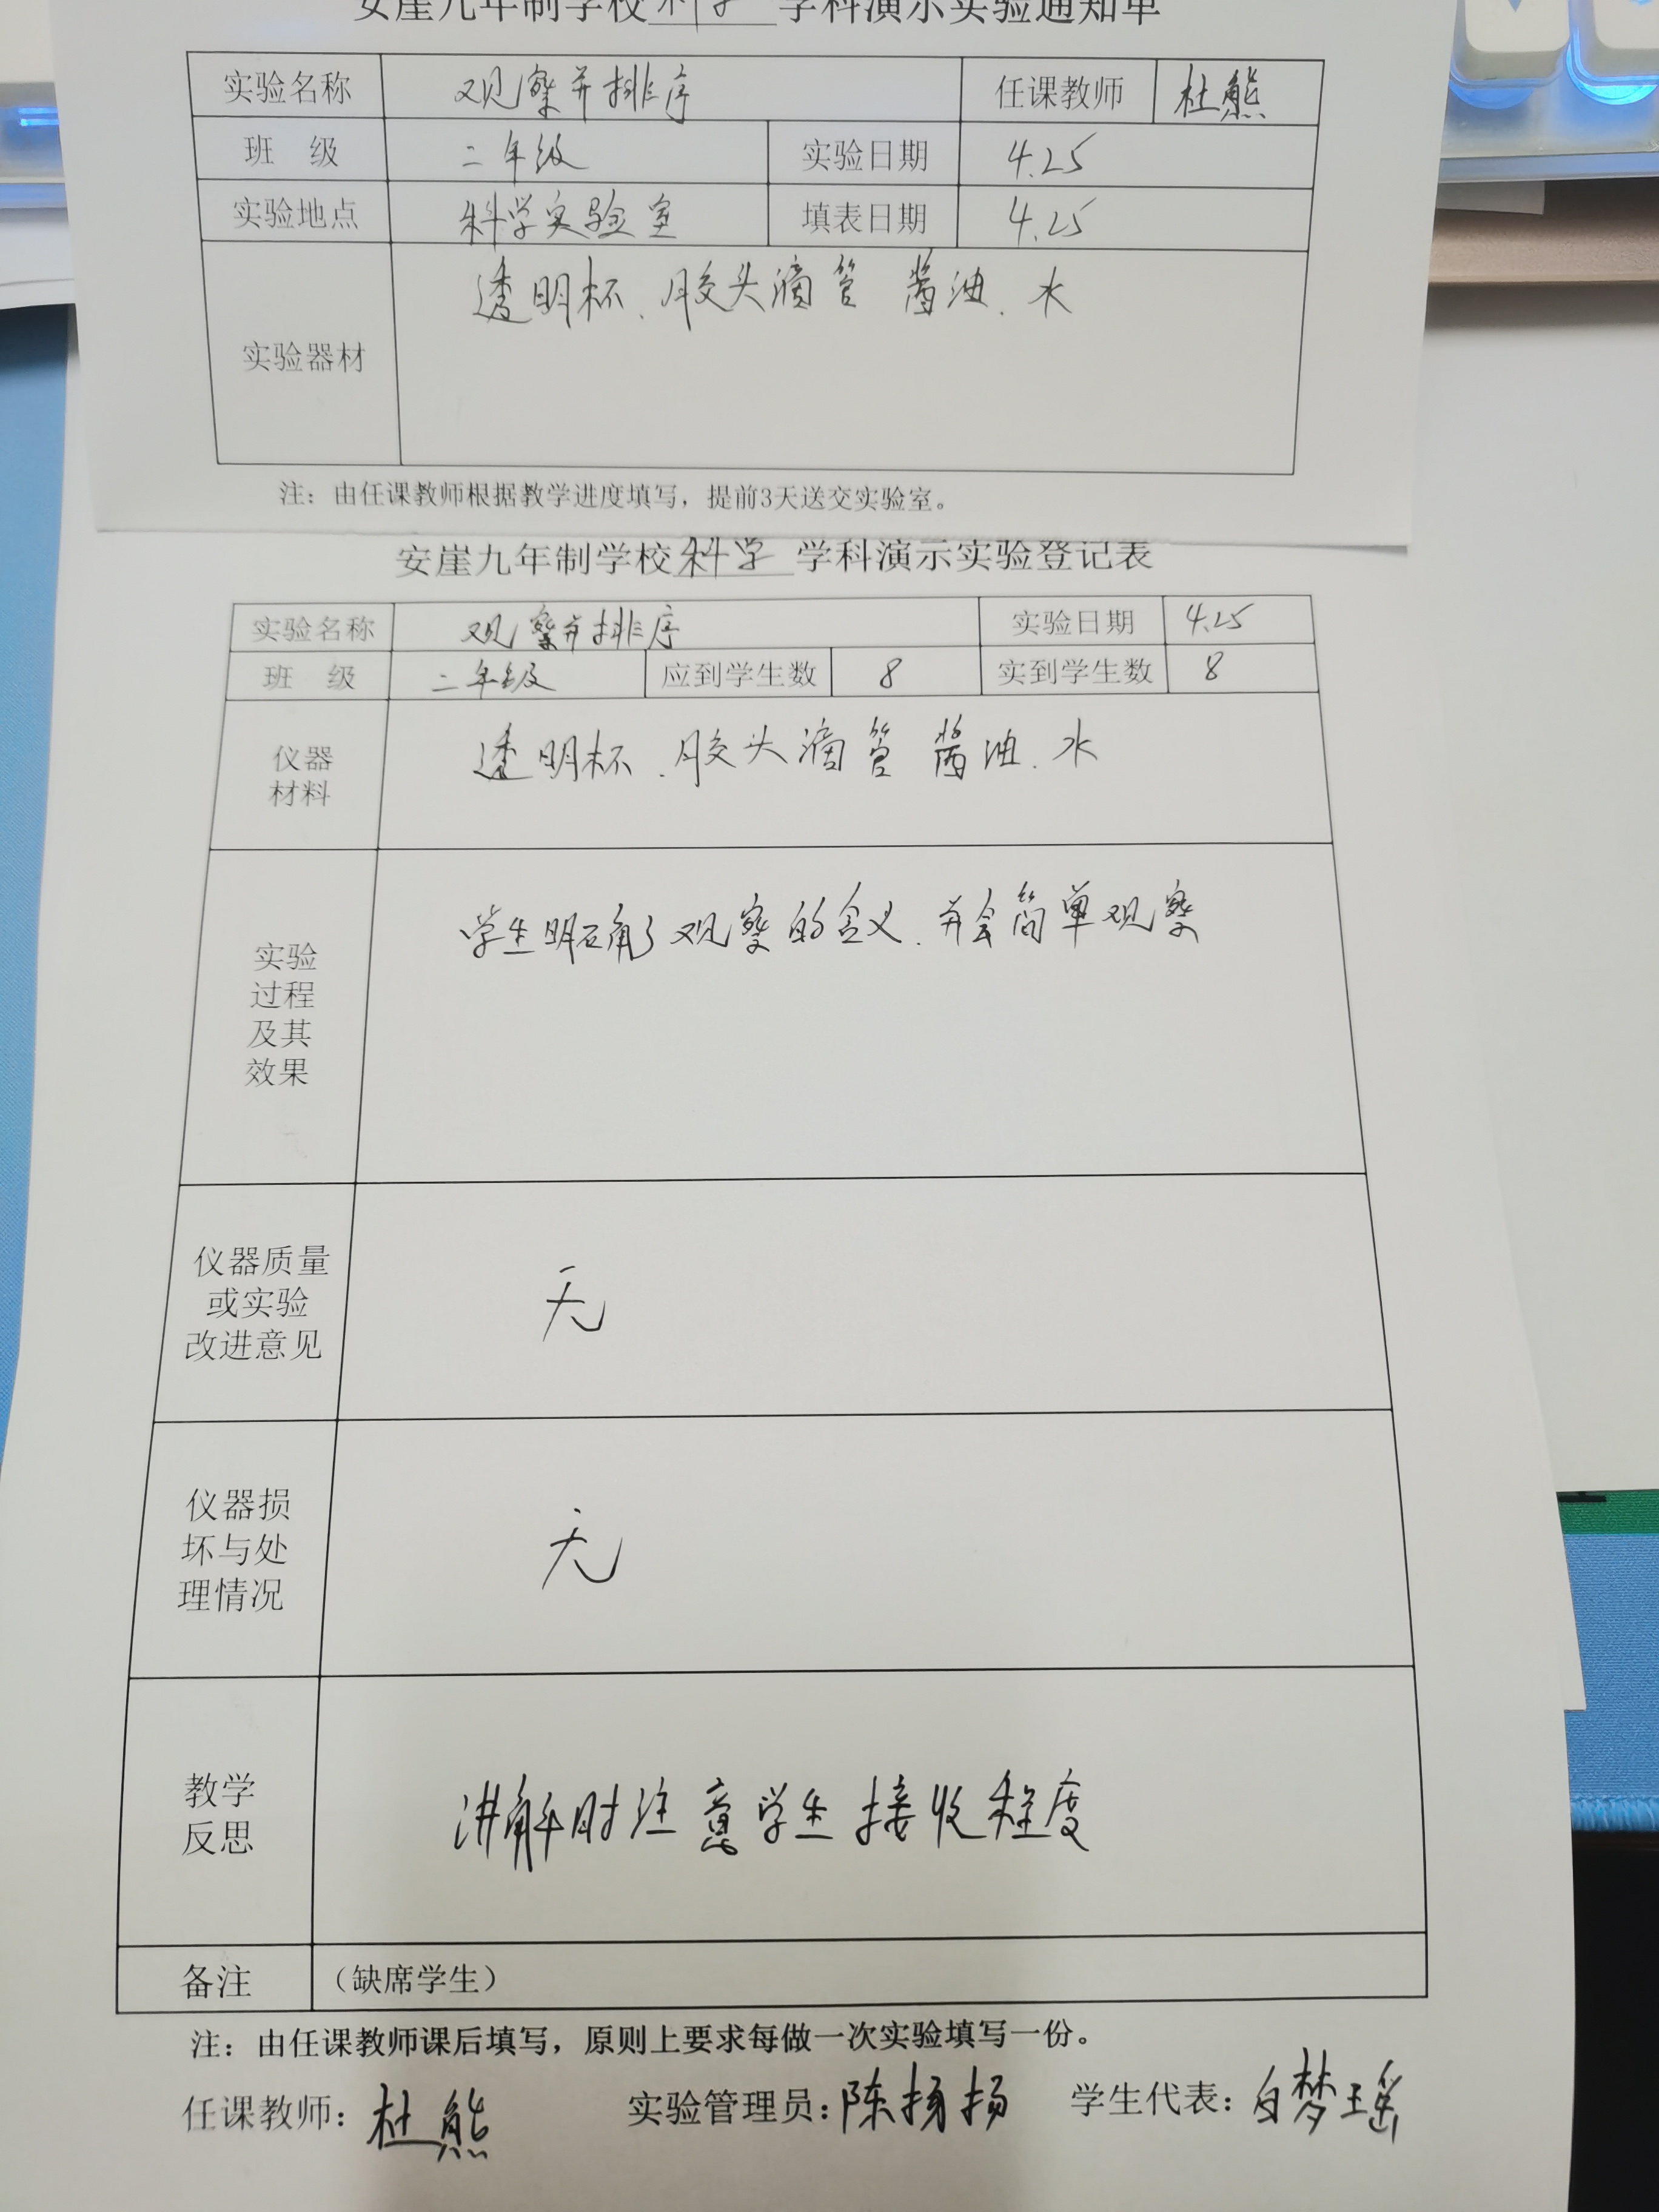 安崖九年制学校 科学 学科演示实验通知单
实验名称 观察并排序 任课教师 杜熊
班 级 二年级 实验日期 4.25
实验地点 科学实验室 填表日期 4.25
实验器材 透明杯、胶头滴管 酱油、水
注：由任课教师根据教学进度填写，提前3天送交实验室。
安崖九年制学校 科学 学科演示实验登记表
实验名称 观察并排序 实验日期 4.25
班 级 二年级 应到学生数 8 实到学生数 8
仪器
材料
透明杯、胶头滴管 酱油、水
实验
过程
及其
效果
学生明确了观察的含义、并会简单观察
仪器质量
或实验
改进意见
无
仪器损
坏与处
理情况
无
教学
反思
讲解时注意学生接收程度
备注 （缺席学生）
注：由任课教师课后填写，原则上要求每做一次实验填写一份。
任课教师：杜熊 实验管理员：陈扬扬 学生代表：白梦瑶